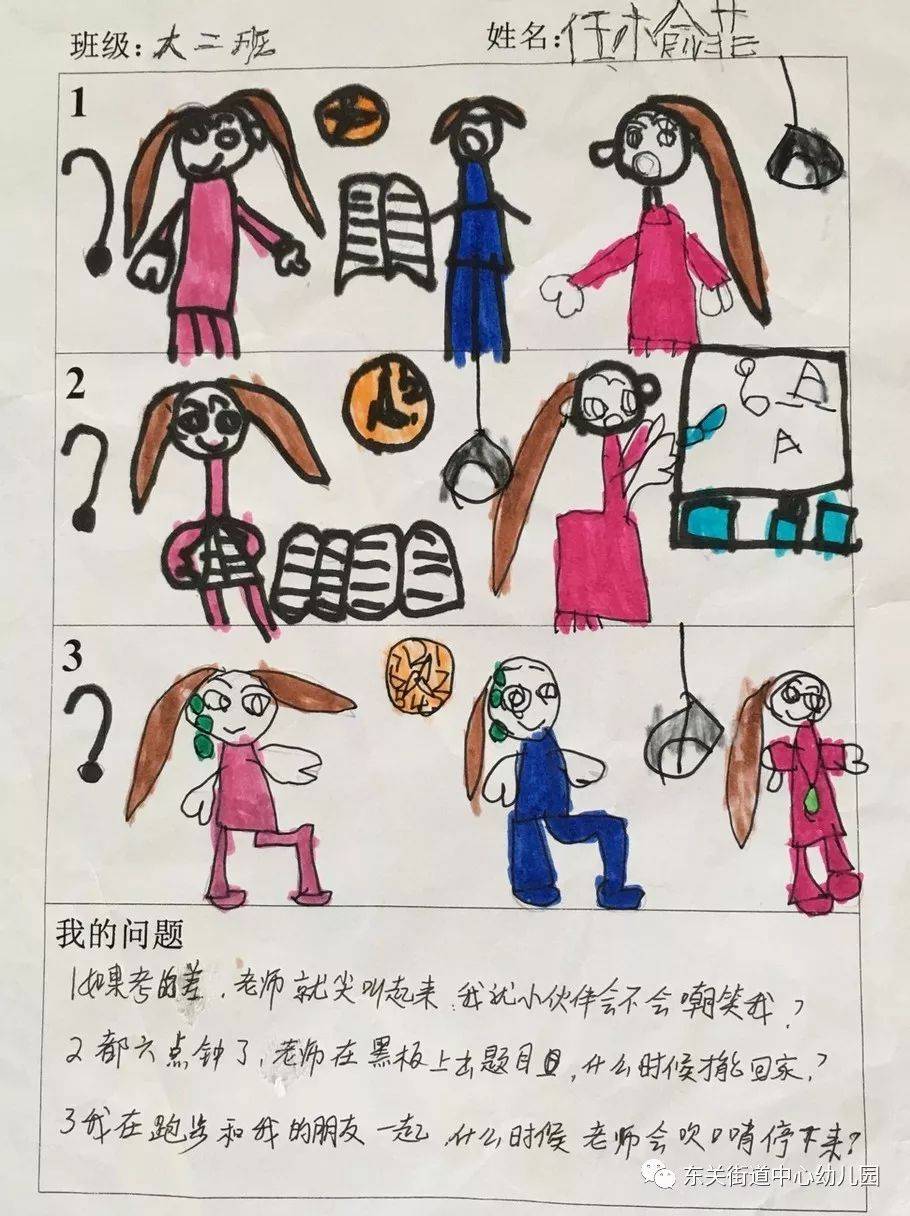 班级: 大二班 姓名: 任木俞芸
1
2
6 A
A
3
我的问题
1如果考的差,老师就尖叫起来 我的小伙伴会不会嘲笑我?
2都六点钟了,老师在黑板上出题目,什么时候才能回家?
3我在跑步和我的朋友一起 什么时候 老师会吹口哨停下来?
东关街道中心幼儿园